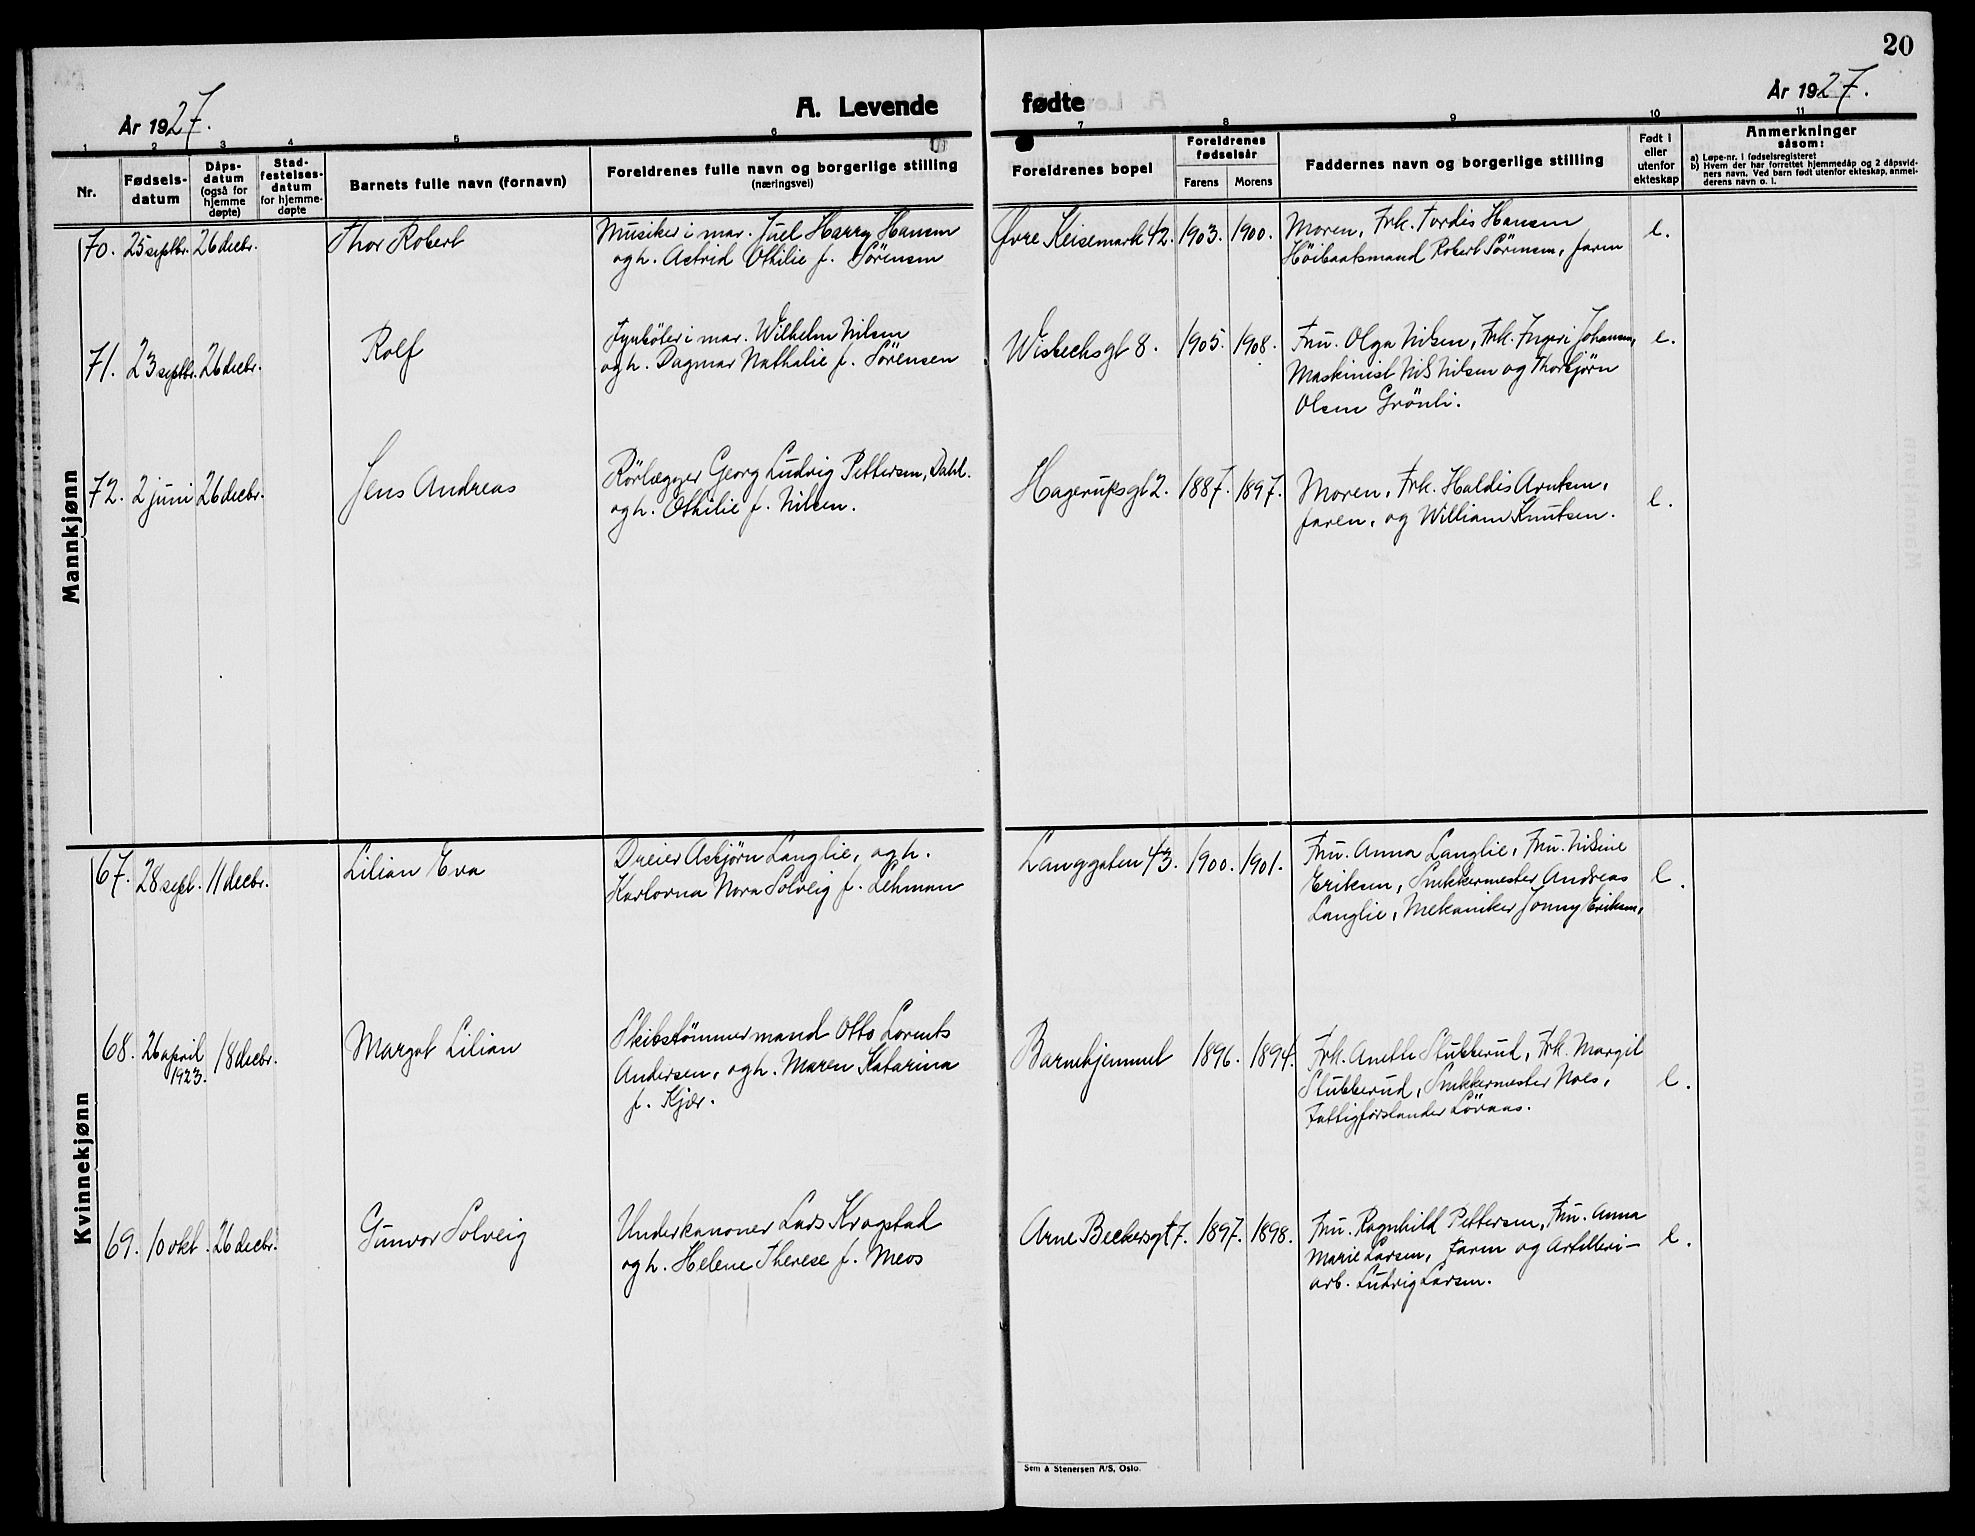 20
År 1927.
A. Levende
fødte
År 1927.
1 2 3 4 5 6 7 8 9 10 11
Nr.
Fødsels-
datum
Dåps-
datum
(også for
hjemme
døpte)
Stad-
festelses-
datum
for hjemme-
døpte
Barnets fulle navn (fornavn)
Foreldrenes fulle navn og borgerlige stilling
(næringsvei)
Foreldrenes bopel
Foreldrenes
fødselsår
Farens Morens
Faddernes navn og borgerlige stilling
Født i
eller
utenfor
ekteskap
Anmerkninger
såsom:
a) Løpe-nr. i fødselsregisteret
b) Hvem der har forrettet hjemmedåp og 2 dåpsvid-
ners navn. Ved barn født utenfor ekteskap, anmel-
derens navn o. l.
Mannkjønn
70. 25 septbr. 26 decbr. Thor Robert
Musiker i mar. Juel Harry Hansen
og h. Astrid Othilie f. Sörensen
Øvre Keisemark 42. 1903. 1900.
Moren, Frk. Tordis Hansen
Höibaatsmand Robert Sörensen, faren
e.
71. 23 septbr. 26 decbr. Rolf
Fyrböter i mar. Wilhelm Nilsen
og h. Dagmar Nathalie f. Sörensen
Wistechsgt 8. 1905. 1908.
Fru. Olga Nilsen, Frk. Ingeri Johansen,
Maskinist Nils Nilsen og Thorbjörn
Olsen Grönli.
e.
72. 2 juni 26 decbr. Jens Andreas
Rörlægger Georg Ludvig Pettersen, Dahl.
og h. Othilie f. Nilsen.
Hagerupsgt 2. 1887. 1897.
Moren, Frk. Haldis Arntsen,
faren, og William Knutsen.
e.
Kvinnekjønn
67. 28 sept. 11 decbr. Lilian Eva
Dreier Asbjørn Langlie, og h.
Karlovna Nora Solveig f. Lehman
Langgaten 43. 1900. 1901.
Fru. Anna Langlie, Fru. Nisine
Eriksen, Snekkermester Andreas
Langlie, Mekaniker Jonny Eriksen,
e.
68. 26 april
1923. 18 decbr. Margot Lilian
Skibstömmermand Otto Lorents
Andersen, og h. Maren Katarina
f. Kjær.
Barnehjemmet 1896. 1894.
Frk. Anette Stubberud, Frk. Margit
Stubberud, Snekkermester Noes,
Fattigforstander Lövaas.
e.
69. 10 okt. 26 decbr. Gunvor Solveig
Underkanoner Lars Krogstad
og h. Helene Therese f. Meos
Arne Beckersgt 7. 1897. 1898.
Fru. Ragnhild Pettersen, Fru. Anna
Marie Larsen, Faren og Artilleri-
arb. Ludvig Larsen.
e.
Sem & Stenersen A/S, Oslo.